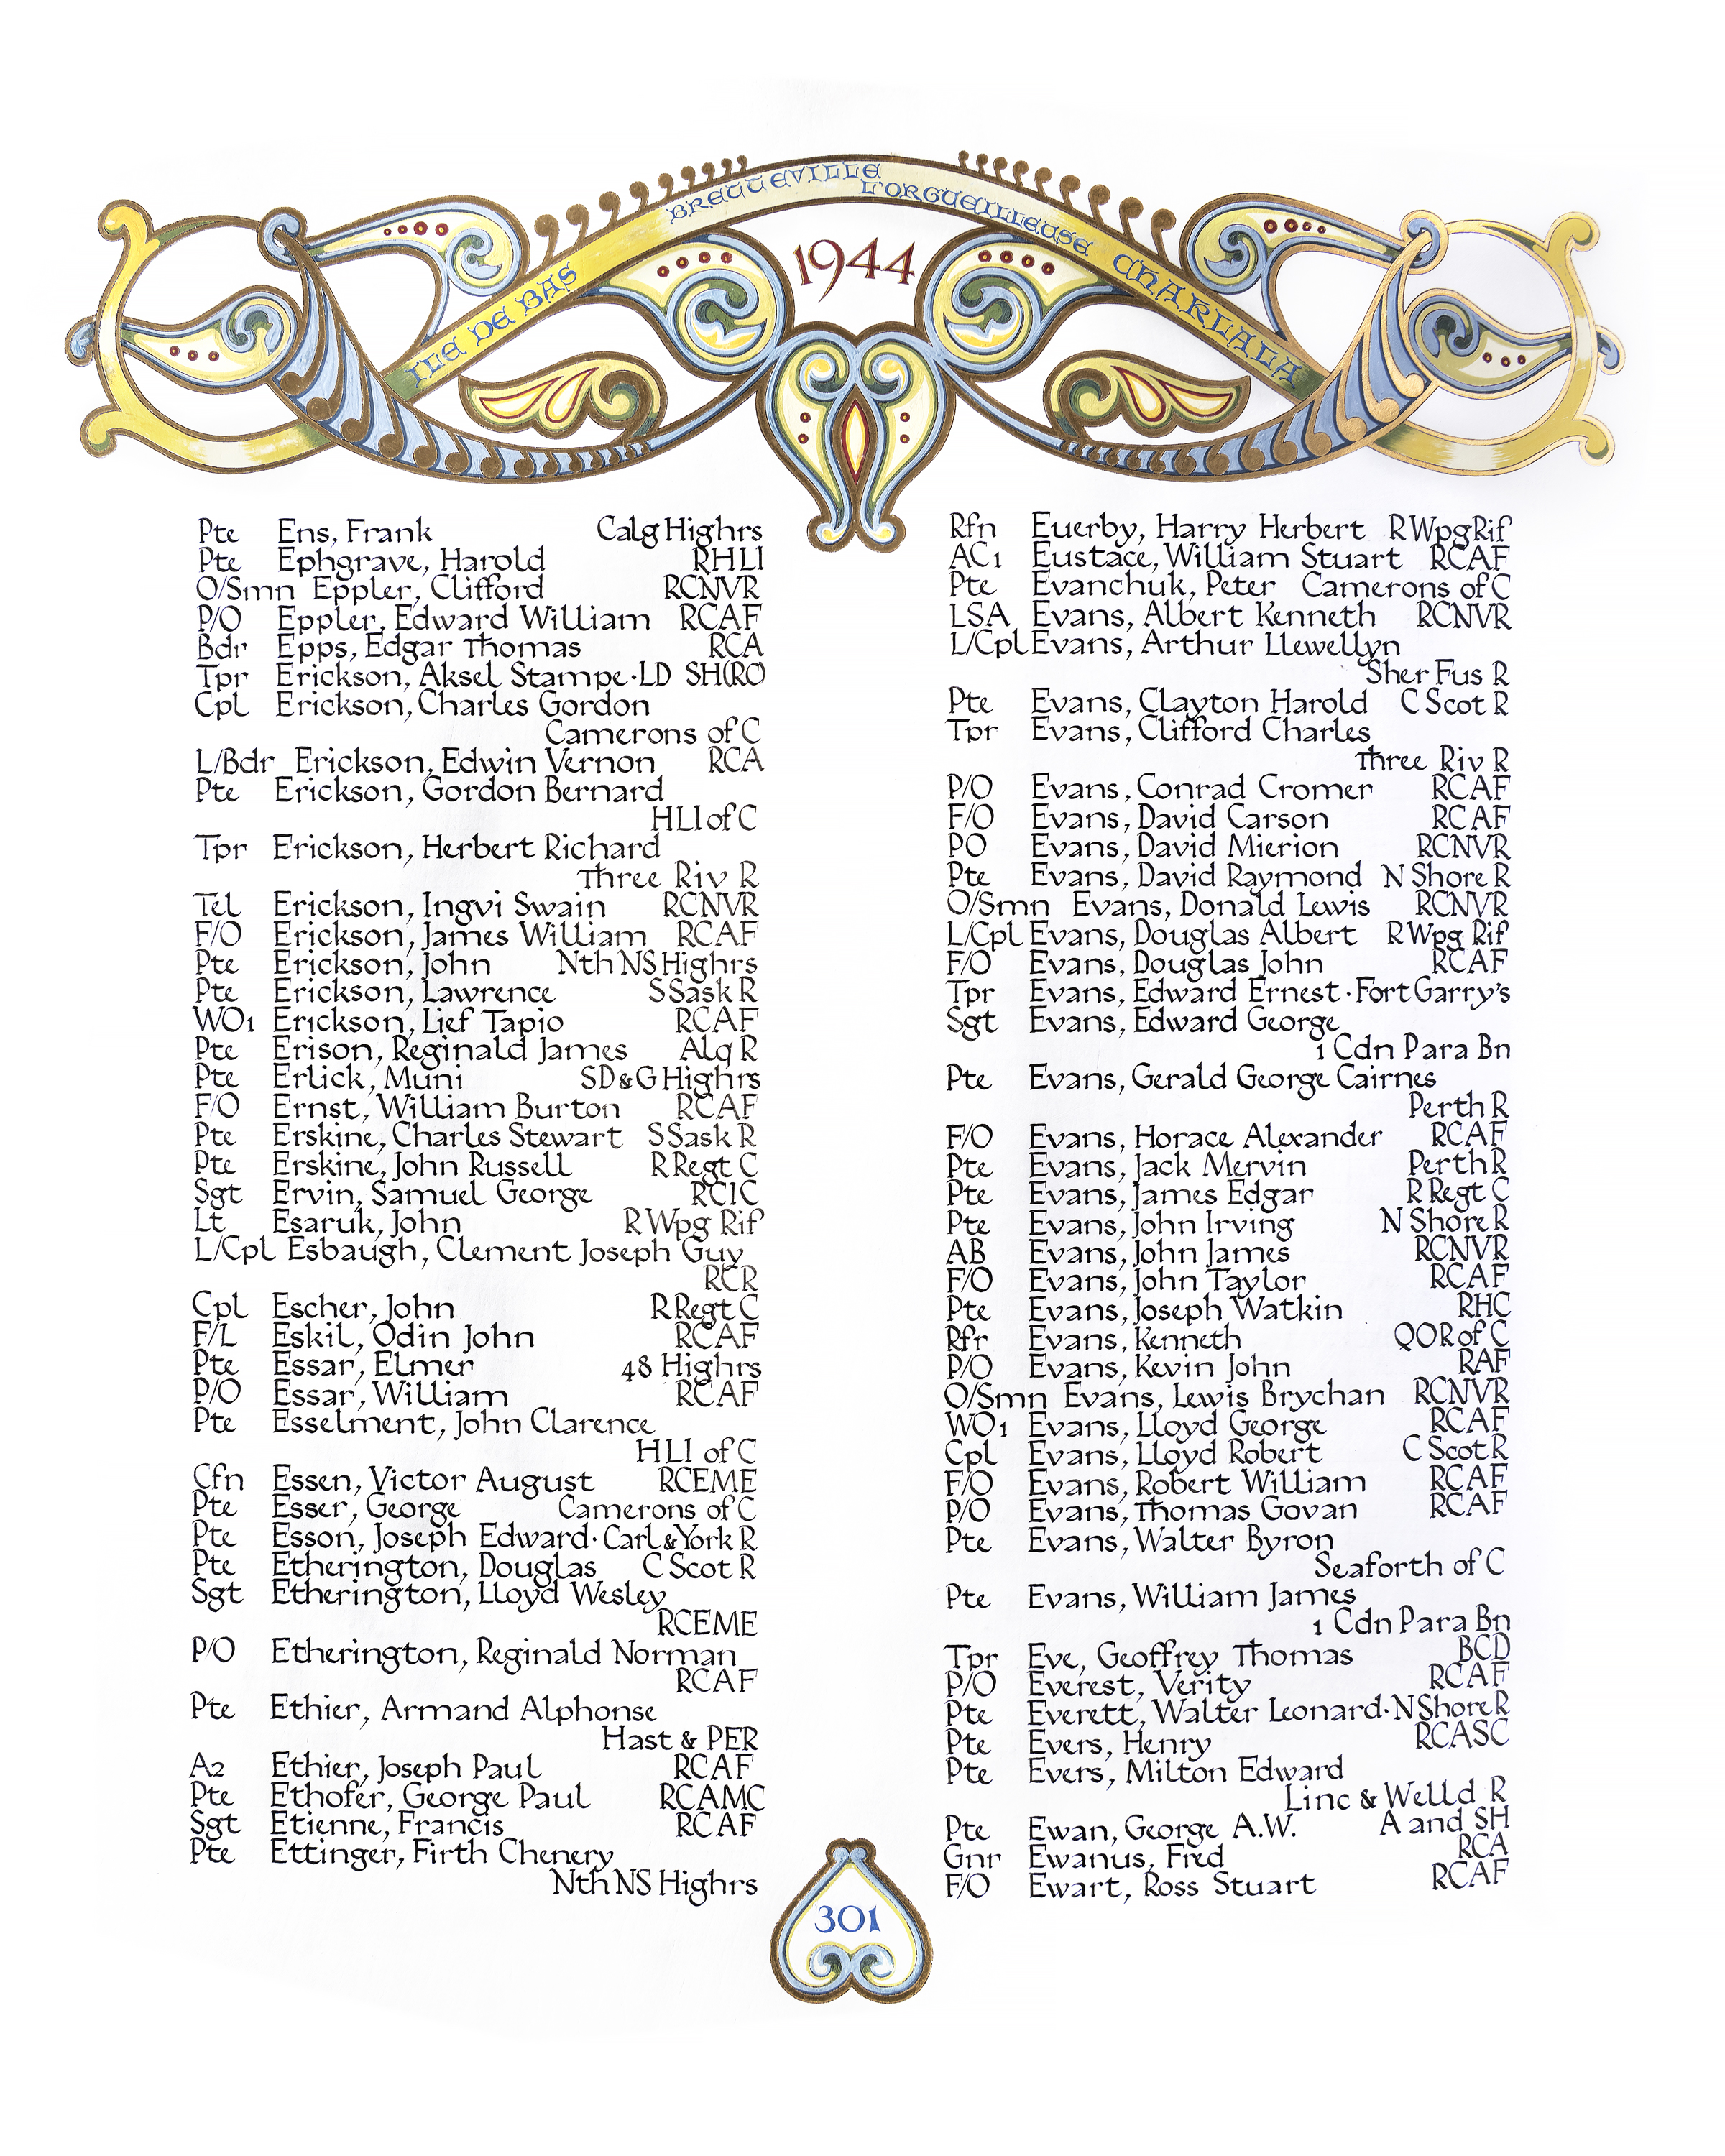 ILE DE BAS BRETTEVILLE L'ORGUEILLEUSE CHARLALA
1944
Pte Ens, Frank Calg Highrs
Pte Ephgrave, Harold RHLI
O/Smn Eppler, Clifford RCNVR
P/O Eppler, Edward William RCAF
Bdr Epps, Edgar Thomas RCA
Tpr Erickson, Aksel Stampe·LD SH(RC)
Cpl Erickson, Charles Gordon
Camerons of C
L/Bdr Erickson, Edwin Vernon RCA
Pte Erickson, Gordon Bernard
HLI of C
Tpr Erickson, Herbert Richard
Three Riv R
Tel Erickson, Ingvi Swain RCNVR
F/O Erickson, James William RCAF
Pte Erickson, John Nth NS Highrs
Pte Erickson, Lawrence S Sask R
WO1 Erickson, Lief Tapio RCAF
Pte Erison, Reginald James Alq R
Pte Erlick, Muni SD & G Highrs
F/O Ernst, William Burton RCAF
Pte Erskine, Charles Stewart S Sask R
Pte Erskine, John Russell R Regt C
Sgt Ervin, Samuel George RCIC
Lt Esaruk, John R Wpg Rif
L/Cpl Esbaugh, Clement Joseph Guy
RCR
Cpl Escher, John R Regt C
F/L Eskil, Odin John RCAF
Pte Essar, Elmer 48 Highrs
P/O Essar, William RCAF
Pte Esselment, John Clarence
HLI of C
Cfn Essen, Victor August RCEME
Pte Esser, George Camerons of C
Pte Esson, Joseph Edward·Carl & York R
Pte Etherington, Douglas C Scot R
Sgt Etherington, Lloyd Wesley
RCEME
P/O Etherington, Reginald Norman
RCAF
Pte Ethier, Armand Alphonse
Hast & PER
A2 Ethier, Joseph Paul RCAF
Pte Ethofer, George Paul RCAMC
Sgt Etienne, Francis RCAF
Pte Ettinger, Firth Chenery
Nth NS Highrs
Rfn Euerby, Harry Herbert R Wpg Rif
AC1 Eustace, William Stuart RCAF
Pte Evanchuk, Peter Camerons of C
LSA Evans, Albert Kenneth RCNVR
L/Cpl Evans, Arthur Llewellyn
Sher Fus R
Pte Evans, Clayton Harold C Scot R
Tpr Evans, Clifford Charles
Three Riv R
P/O Evans, Conrad Cromer RCAF
F/O Evans, David Carson RCAF
PO Evans, David Mierion RCNVR
Pte Evans, David Raymond N Shore R
O/Smn Evans, Donald Lewis RCNVR
L/Cpl Evans, Douglas Albert R Wpg Rif
F/O Evans, Douglas John RCAF
Tpr Evans, Edward Ernest·Fort Garry's
Sgt Evans, Edward George
1 Cdn Para Bn
Pte Evans, Gerald George Cairnes
Perth R
F/O Evans, Horace Alexander RCAF
Pte Evans, Jack Mervin Perth R
Pte Evans, James Edgar R Regt C
Pte Evans, John Irving N Shore R
AB Evans, John James RCNVR
F/O Evans, John Taylor RCAF
Pte Evans, Joseph Watkin RHC
Rfr Evans, Kenneth QOR of C
P/O Evans, Kevin John RAF
O/Smn Evans, Lewis Brychan RCNVR
WO1 Evans, Lloyd George RCAF
Cpl Evans, Lloyd Robert C Scot R
F/O Evans, Robert William RCAF
P/O Evans, Thomas Govan RCAF
Pte Evans, Walter Byron
Seaforth of C
Pte Evans, William James
1 Cdn Para Bn
Tpr Eve, Geoffrey Thomas BCD
P/O Everest, Verity RCAF
Pte Everett, Walter Leonard·N Shore R
Pte Evers, Henry RCASC
Pte Evers, Milton Edward
Linc & Welld R
Pte Ewan, George A.W. A and SH
Gnr Ewanus, Fred RCA
F/O Ewart, Ross Stuart RCAF
301